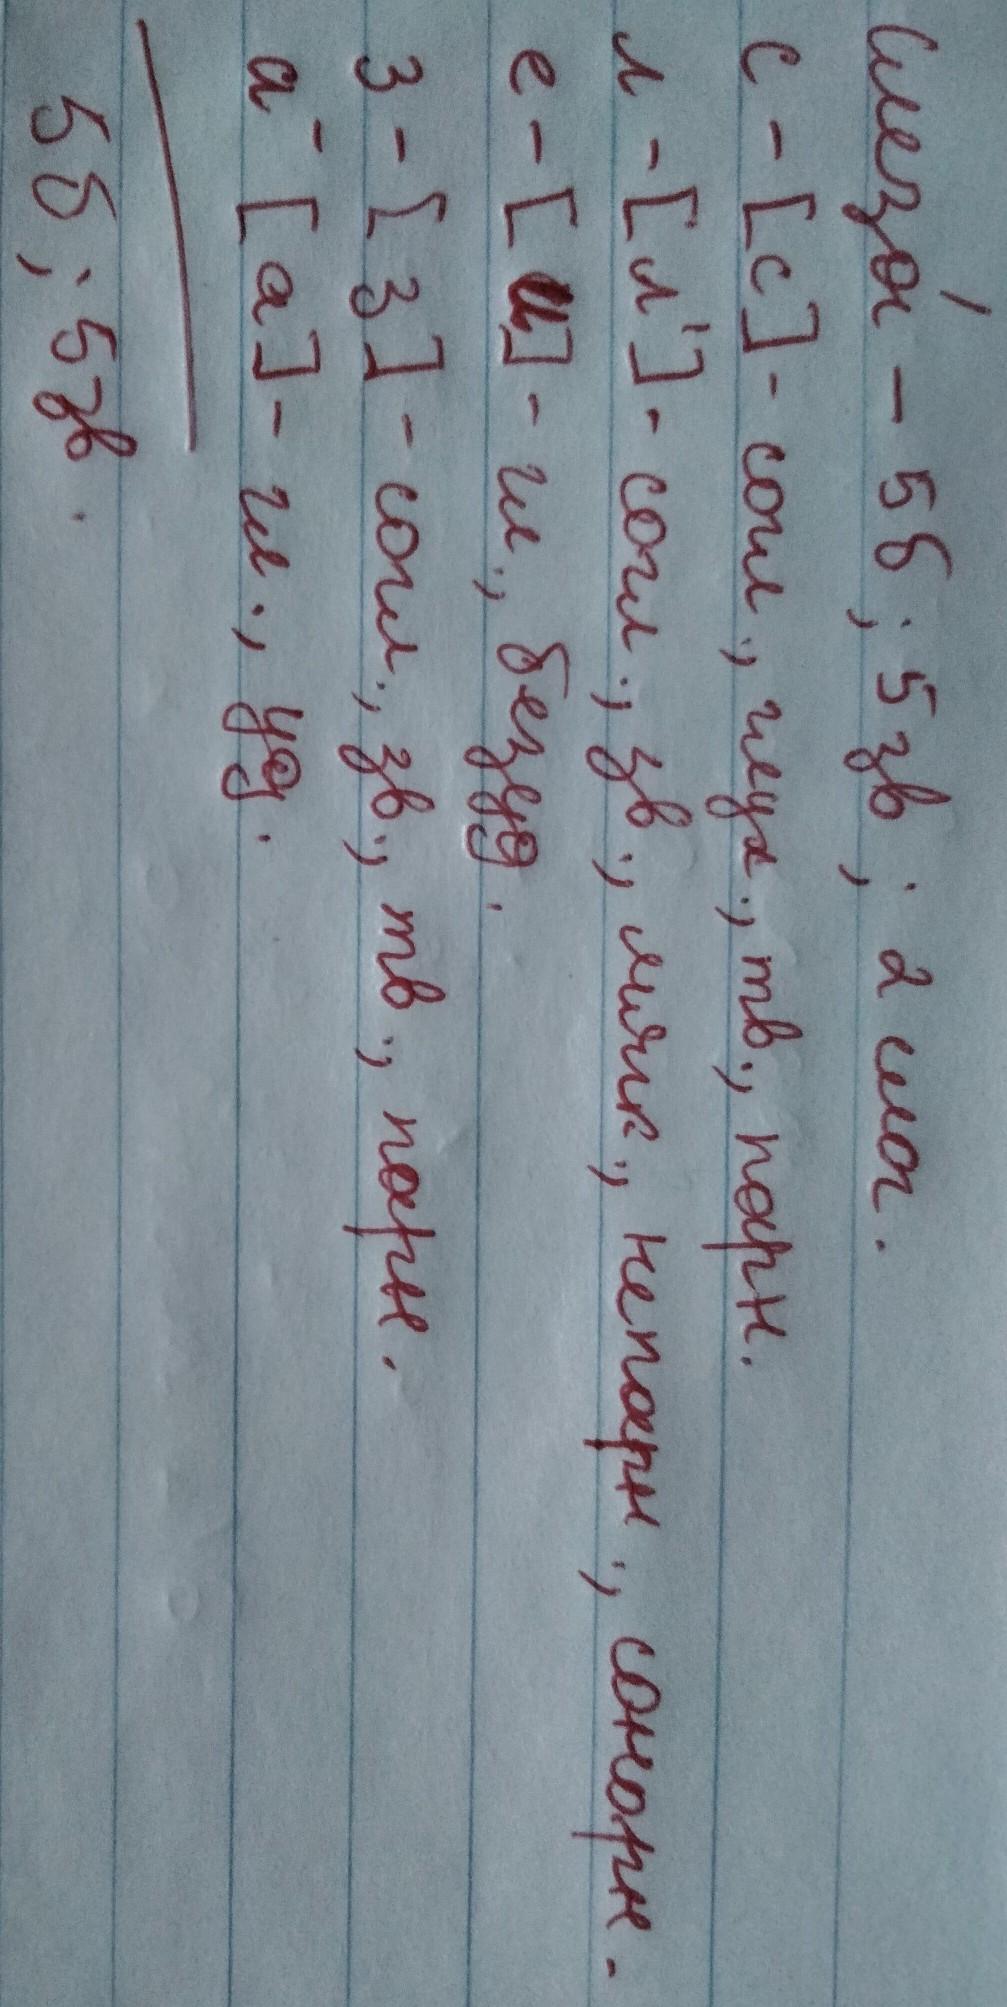 Слеза́ - 5б; 5зв; 2 слог.
с - [с] - согл., глух., тв., парн.
л - [л'] - согл., зв., мягк., непарн., сонорн.
е - [и] - гл., безуд.
з - [з] - согл., зв., тв., парн.
а - [а] - гл., уд.
5б; 5зв.